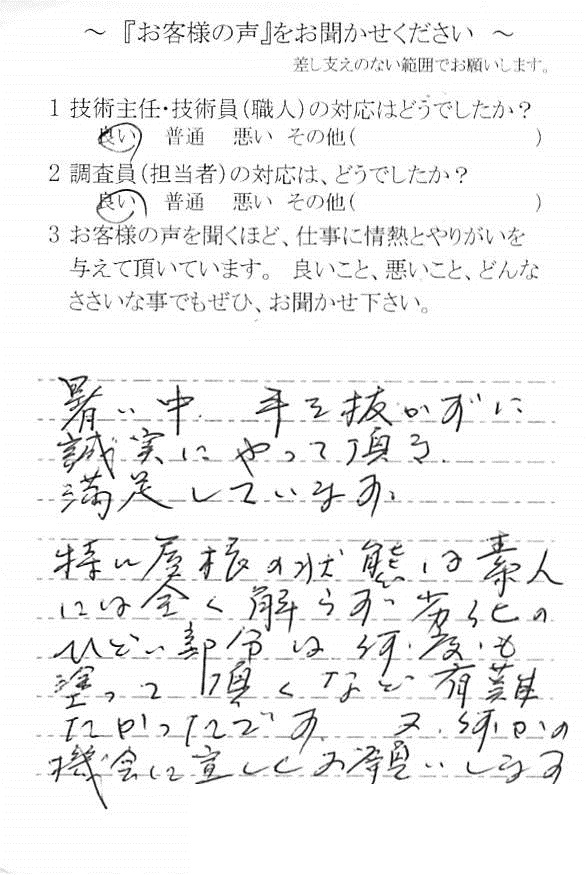 ～『お客様の声』をお聞かせください～
差し支えのない範囲でお願いします。
1 技術主任・技術員(職人)の対応はどうでしたか?
良い 普通 悪い その他( )
2 調査員(担当者)の対応は、どうでしたか?
良い 普通 悪い その他( )
3 お客様の声を聞くほど、仕事に情熱とやりがいを
与えて頂いています。 良いこと、悪いこと、どんな
ささいな事でもぜひ、お聞かせ下さい。
暑い中、手を抜かずに
誠実にやって頂き、
満足しています。
特に屋根の状態は素人
には全く解らず、劣化の
ひどい部分は何度も
塗って頂くなど有難
たかったです。又、何かの
機会に宜しくお願いします